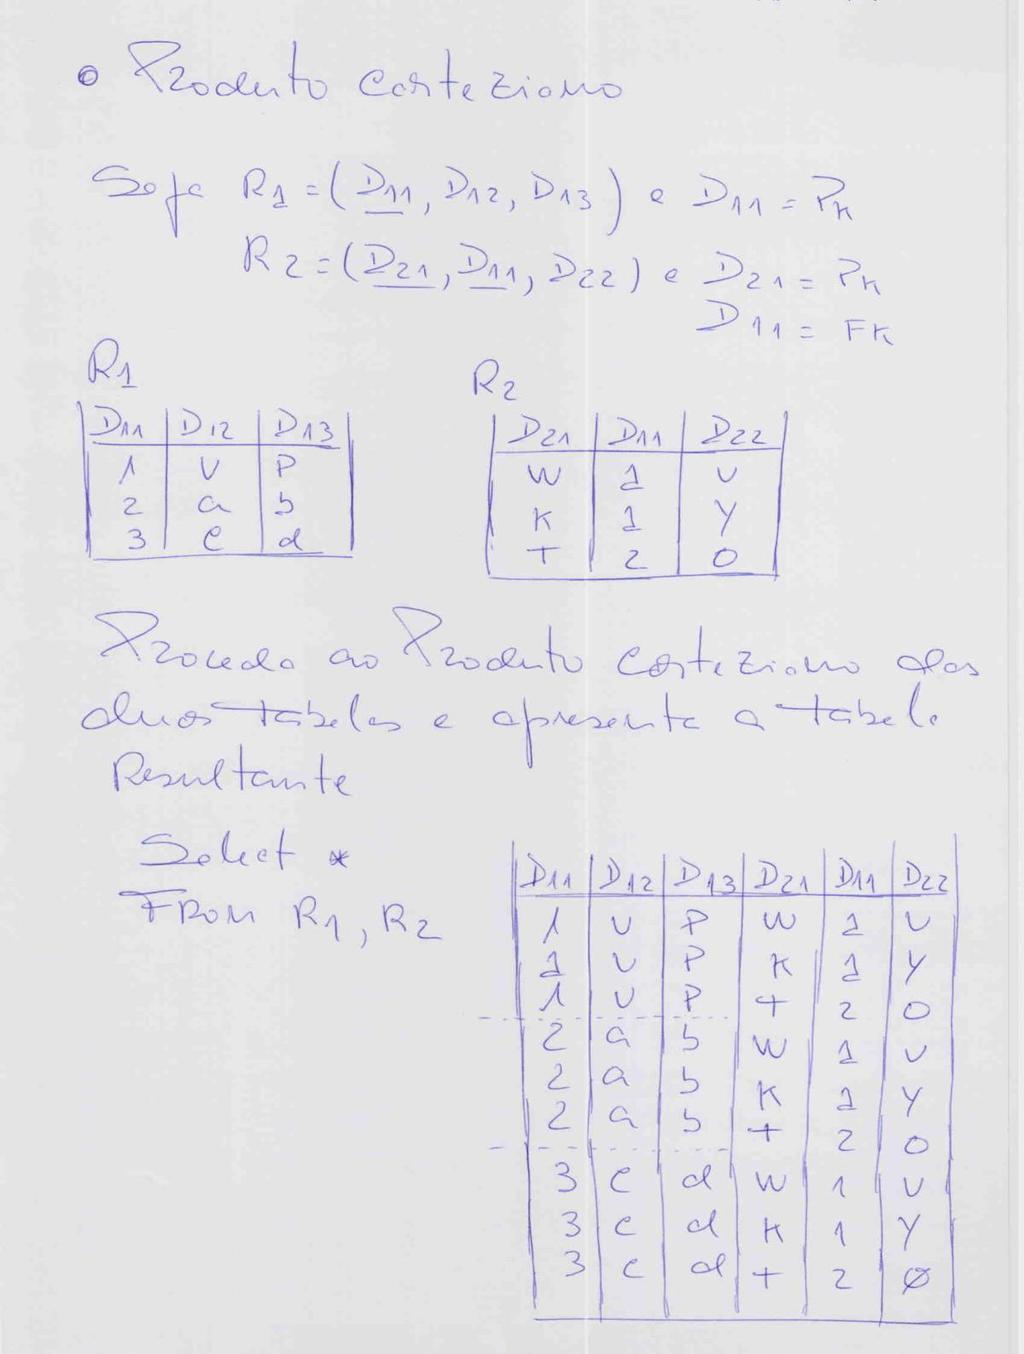 • Produto Carteziano
Seja R1 = (D11, D12, D13) e D11 = PK
R2 = (D21, D11, D22) e D21 = PK
D11 = FK
R1
D11 D12 D13
1 U P
2 a b
3 c d
R2
D21 D11 D22
W 1 U
K 1 Y
T 2 O
Proceda ao Produto Carteziano das
duas tabelas e apresenta a tabela
Resultante
Select *
FROM R1, R2
D11 D12 D13 D21 D11 D22
1 U P W 1 U
1 U P K 1 Y
1 U P T 2 O
2 a b W 1 U
2 a b K 1 Y
2 a b T 2 O
3 c d W 1 U
3 c d K 1 Y
3 c d T 2 Ø